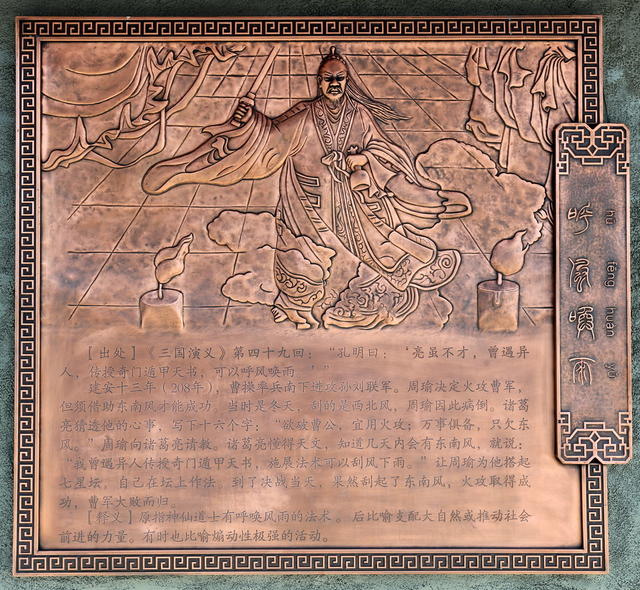 呼风唤雨
hū fēng huàn yǔ
【出处】《三国演义》第四十九回：“孔明曰：‘亮虽不才，曾遇异
人，传授奇门遁甲天书，可以呼风唤雨。’”
建安十三年（208年），曹操率兵南下进攻孙刘联军。周瑜决定火攻曹军，
但须借助东南风才能成功。当时是冬天，刮的是西北风，周瑜因此病倒。诸葛
亮猜透他的心事，写下十六个字：“欲破曹公，宜用火攻；万事俱备，只欠东
风。”周瑜向诸葛亮请教。诸葛亮懂得天文，知道几天内会有东南风，就说：
“我曾遇异人传授奇门遁甲天书，施展法术可以刮风下雨。”让周瑜为他搭起
七星坛，自己在坛上作法。到了决战当天，果然刮起了东南风，火攻取得成
功，曹军大败而归。
【释义】原指神仙道士有呼唤风雨的法术。后比喻支配大自然或推动社会
前进的力量。有时也比喻煽动性极强的活动。